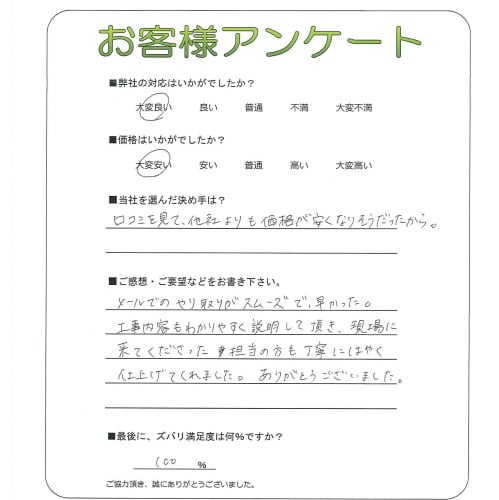 お客様アンケート
■弊社の対応はいかがでしたか？
大変良い 良い 普通 不満 大変不満
■価格はいかがでしたか？
大変安い 安い 普通 高い 大変高い
■当社を選んだ決め手は？
口コミを見て、他社よりも価格が安くなりそうだったから。
■ご感想・ご要望などをお書き下さい。
メールでのやり取りがスムーズで、早かった。
工事内容もわかりやすく説明して頂き、現場に
来てくださった担当の方も丁寧にはやく
仕上げてくれました。ありがとうございました。
■最後に、ズバリ満足度は何%ですか？
100 %
ご協力頂き、誠にありがとうございました。